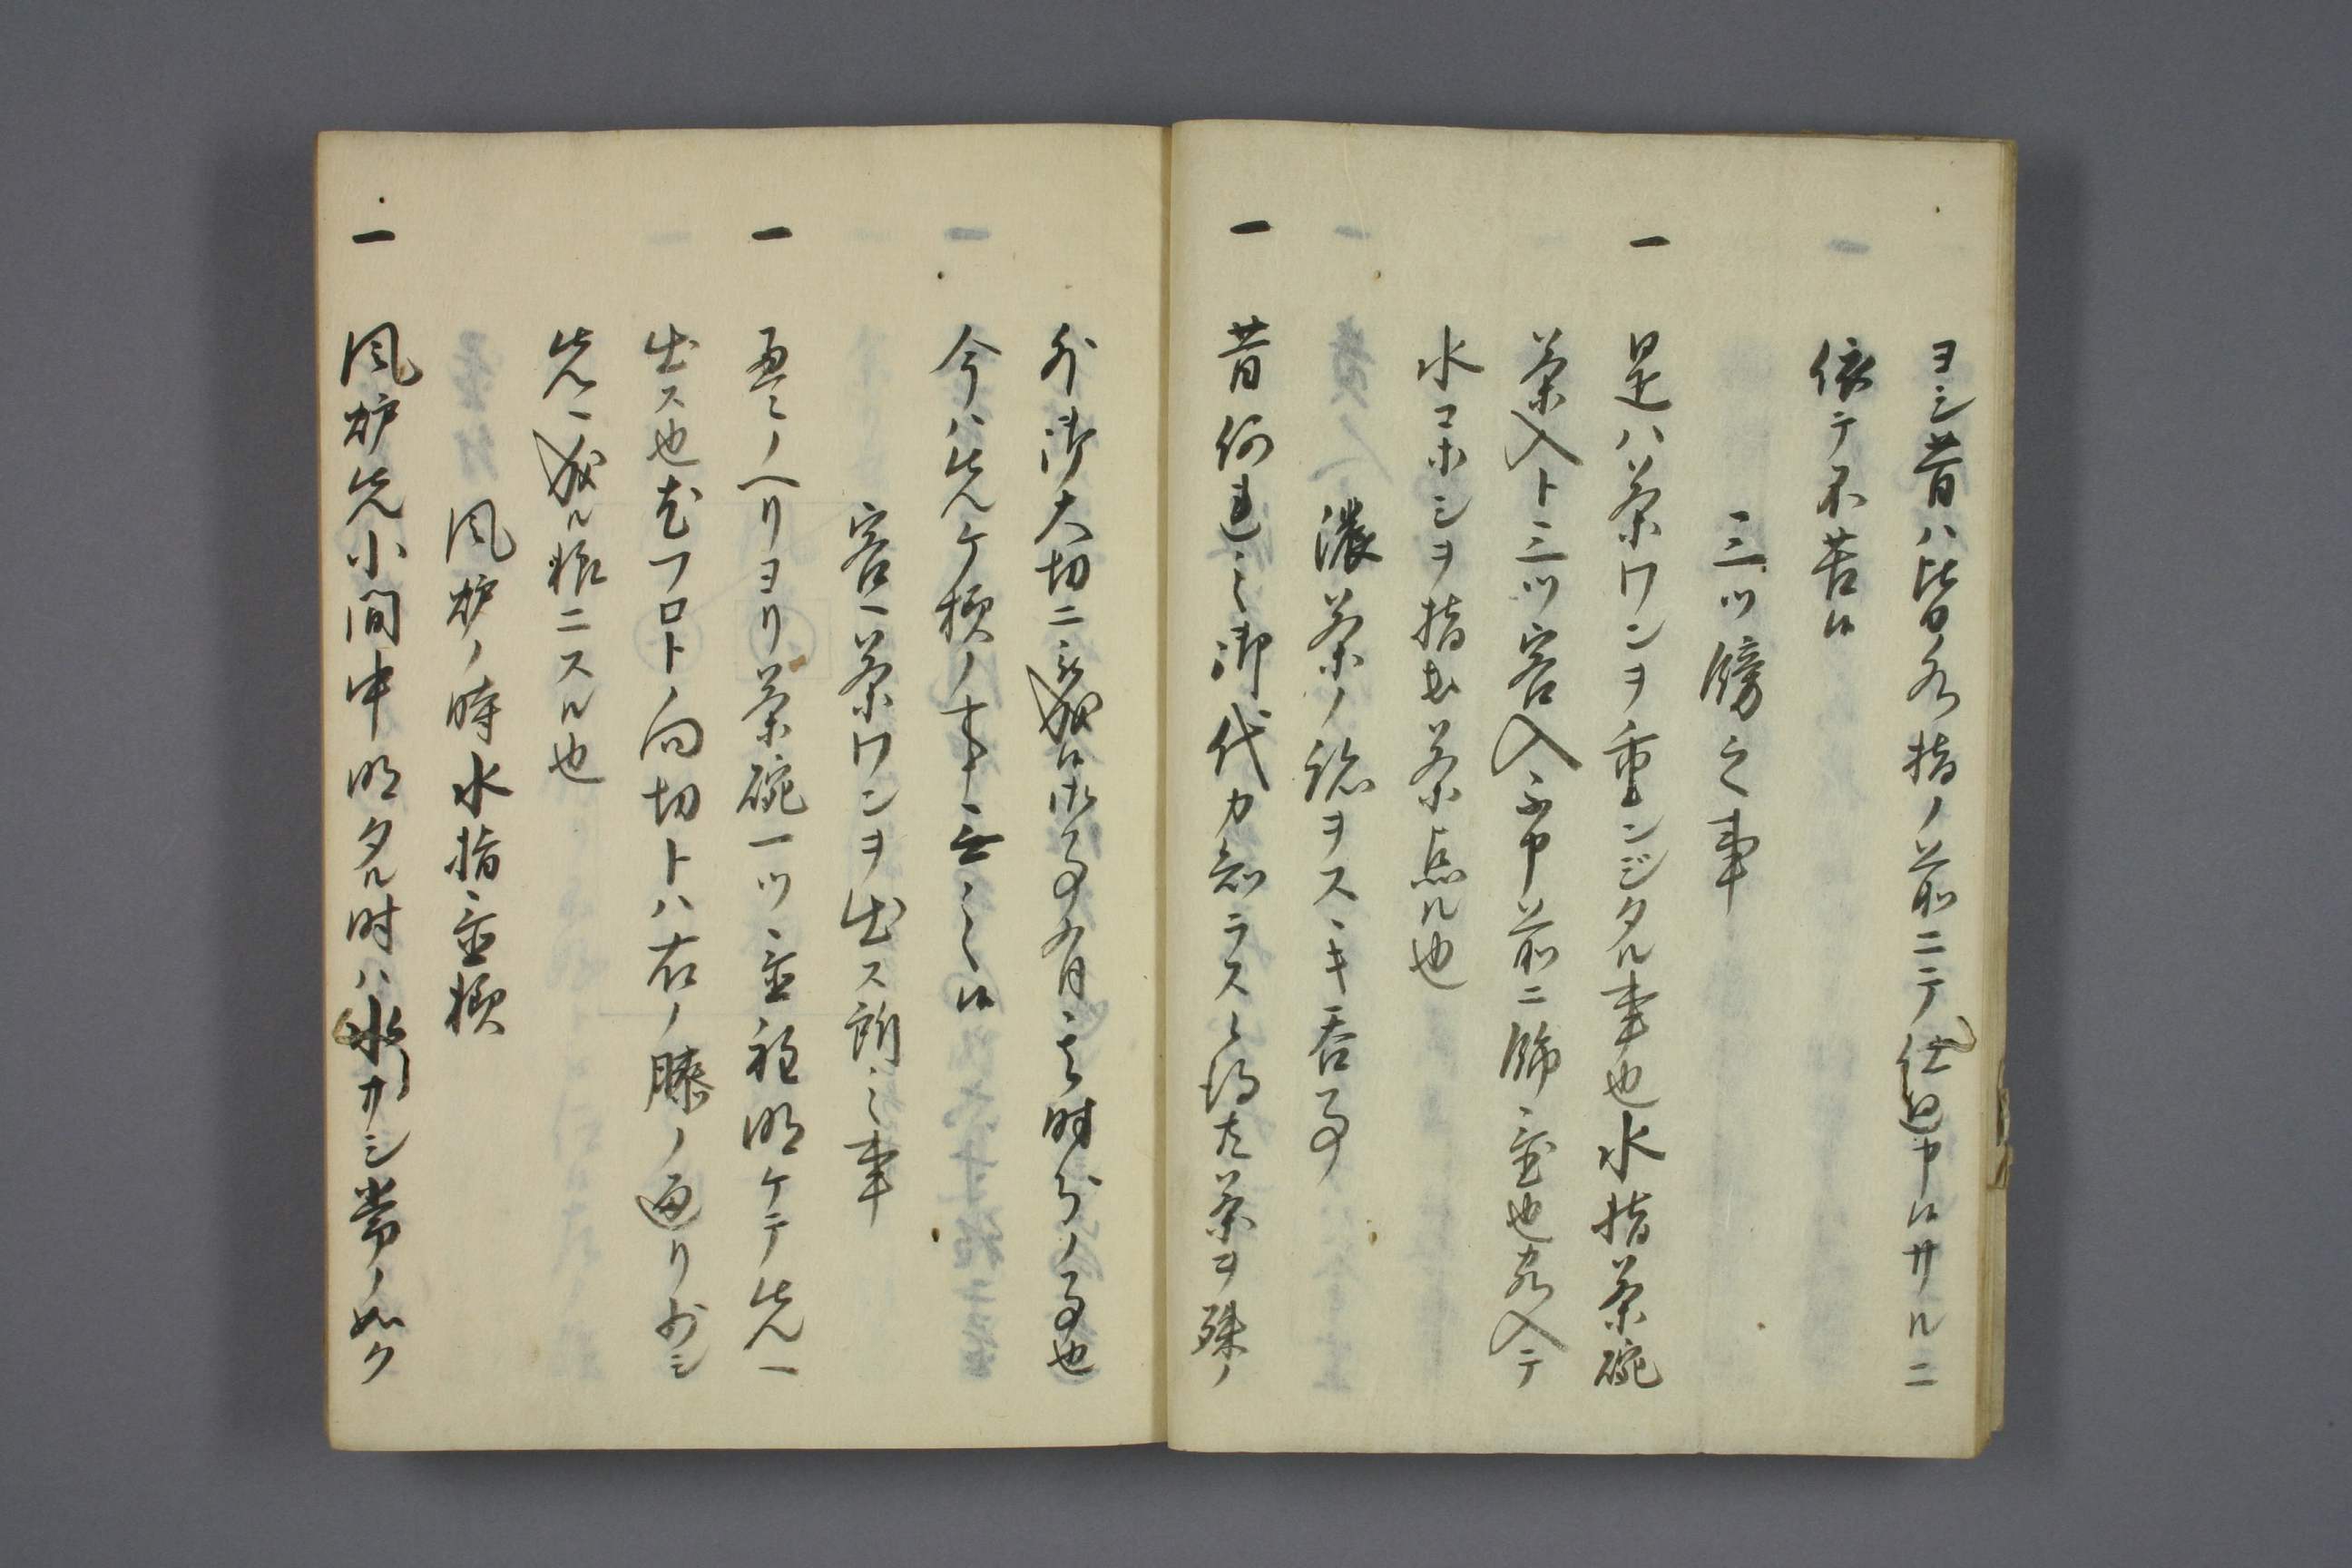 ヨシ昔ハ皆水指ノ前ニテ仕廻申候サルニ
依テ不苦候
三ツ餝之事
一 是ハ茶ワンヲ重ンジタル事也水指茶碗
茶入ト三ツ客入不申前ニ餝置也客入テ
水コホシヲ指出茶点ル也
濃茶ノ続ヲスヽキ呑事
一 昔何連之御代カ知ラス茶ヲ殊ノ
外御大切ニ被成候事有之時分ノ事也
今ハ先ケ様ノ事ナ無之候
客へ茶ワンヲ出ス所之事
一 畳ノヘリヨリ茶碗一ツ置程明ケテ先へ
出ス也フロト向切トハ右ノ膝ノ通リ少シ
先へ成ル様ニスル也
風炉ノ時水指置様
一 風炉先小間中明タル時ハ水サシ常ノ如ク